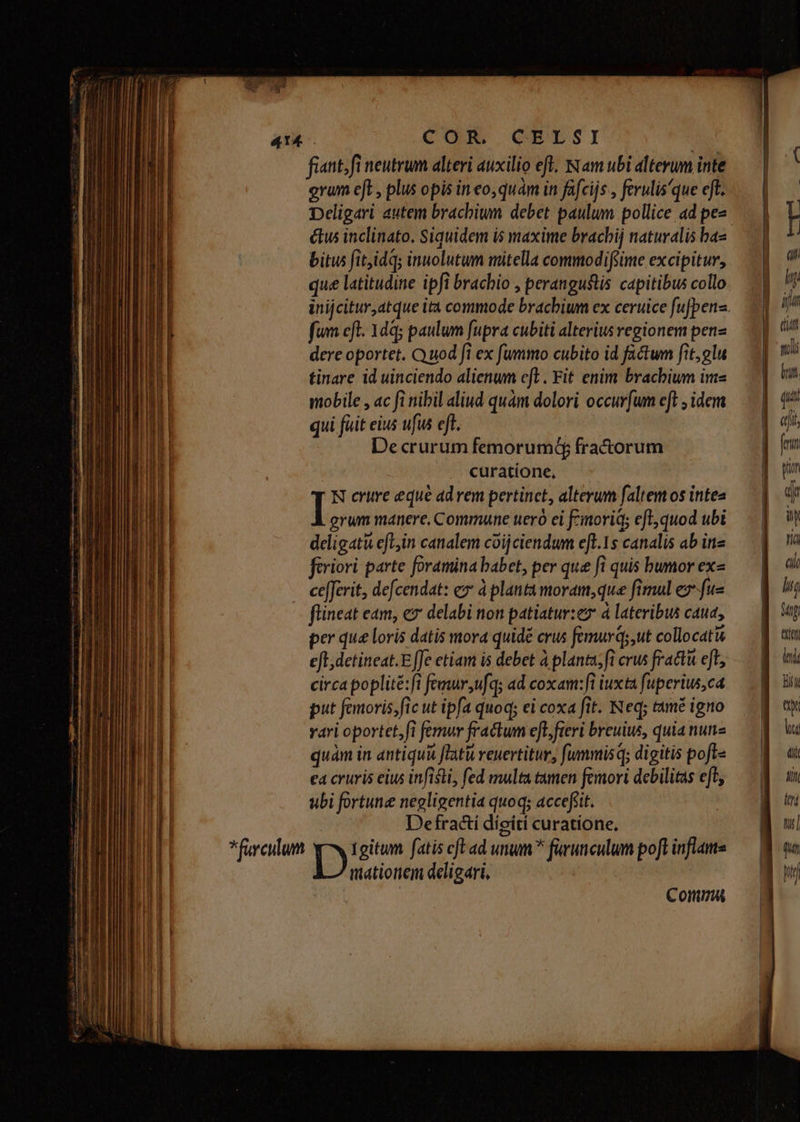 414 COR. CELSI
fiant, ſi neutrum alteri auxilio eſt. Nam ubi alterum inte
grum eſt, plus opis in eo, quàm in faſcijs, ferulis'que eſt.
Deligari autem brachium debet paulum pollice ad pe=
ctus inclinato. Siquidem is maxime brachij naturalis ha=
bitus ſit, idq́; inuolutum mitella commodiſsime excipitur,
quæ latitudine ipſi brachio, peranguſtis capitibus collo
inijcitur, atque ita commode brachium ex ceruice ſuſpen=
ſum eſt. Idq́; paulum ſupra cubiti alterius regionem pen=
dere oportet. Quod ſi ex ſummo cubito id factum ſit, glu
tinare id uinciendo alienum eſt. Fit enim brachium im=
mobile, ac ſi nihil aliud quàm dolori occurſum eſt, idem
qui fuit eius uſus eſt.
De crurum femorumq́; fractorum
curatione.
IN crure æquè ad rem pertinet, alterum ſaltem os inte=
grum manere. Commune uerò ei femoriq́; eſt, quod ubi
deligatũ eſt, in canalem cõijciendum eſt. Is canalis ab in=
feriori parte foramina habet, per quæ ſi quis humor ex=
ceſſerit, deſcendat: & à planta moram, quæ ſimul & ſu=
ſtineat eam, & delabi non patiatur: & à lateribus caua,
per quæ loris datis mora quidẽ crus femurq́;, ut collocatũ
eſt, detineat. Eſſe etiam is debet à planta, ſi crus fractũ eſt,
circa poplitẽ: ſi femur, uſq; ad coxam: ſi iuxta ſuperius, ca
put femoris, ſic ut ipſa quoq; ei coxa ſit. Neq; tamẽ igno
rari oportet, ſi femur fractum eſt, fieri breuius, quia nun=
quàm in antiquũ ſtatũ reuertitur, ſummisq́; digitis poſt=
ea cruris eius inſiſti, ſed multa tamen femori debilitas eſt,
ubi fortunæ negligentia quoq; acceſsit.
De fracti digiti curatione.
*ſurculum DIgitum ſatis eſt ad unum * furunculum poſt inflam=
mationem deligari.
Commu